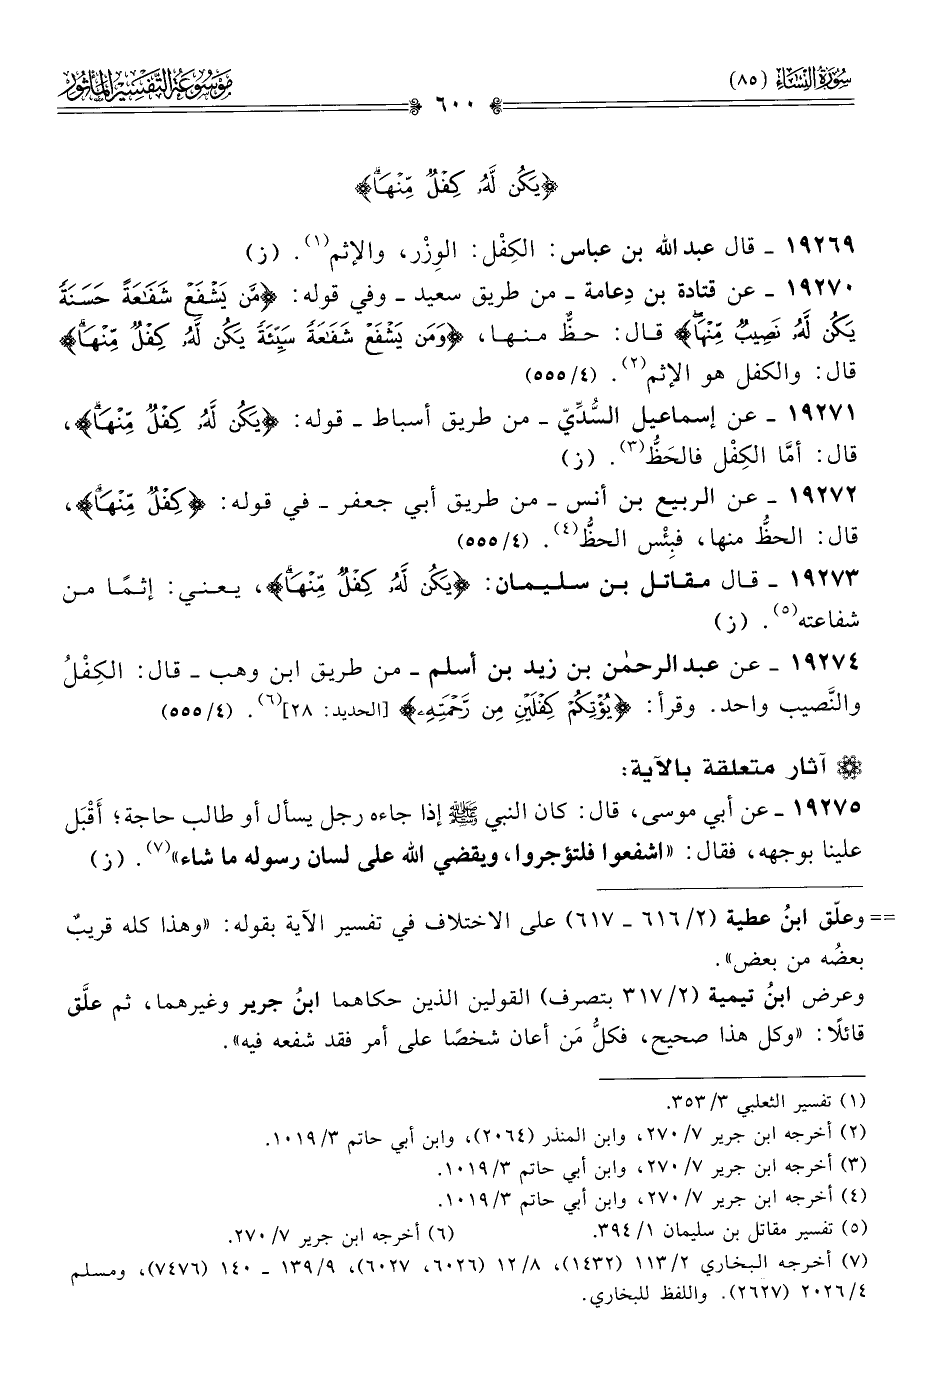 سُورَةُ النِّسَاءِ (٨٥)
٦٠٠
مَوْسُوعَةُ التَّفْسِيرِ المَأْثُورِ
﴿يَكُن لَّهُۥ كِفْلٌ مِّنْهَاۗ﴾
١٩٢٦٩ ـ قال عبد الله بن عباس: الكِفْل: الوِزْر، والإثم(١). (ز)
١٩٢٧٠ ـ عن قتادة بن دِعامة ـ من طريق سعيد ـ وفي قوله: ﴿مَّن يَشْفَعْ شَفَٰعَةً حَسَنَةً
يَكُن لَّهُۥ نَصِيبٌ مِّنْهَاۖ﴾ قال: حظٌّ منها، ﴿وَمَن يَشْفَعْ شَفَٰعَةً سَيِّئَةً يَكُن لَّهُۥ كِفْلٌ مِّنْهَاۗ﴾
قال: والكفل هو الإثم(٢). (٤/ ٥٥٥)
١٩٢٧١ ـ عن إسماعيل السُّدِّيّ ـ من طريق أسباط ـ قوله: ﴿يَكُن لَّهُۥ كِفْلٌ مِّنْهَاۗ﴾،
قال: أمَّا الكِفْل فالحَظُّ(٣). (ز)
١٩٢٧٢ ـ عن الربيع بن أنس ـ من طريق أبي جعفر ـ في قوله: ﴿كِفْلٌ مِّنْهَاۗ﴾،
قال: الحظُّ منها، فبِئْس الحظُّ(٤). (٤/ ٥٥٥)
١٩٢٧٣ ـ قال مقاتل بن سليمان: ﴿يَكُن لَّهُۥ كِفْلٌ مِّنْهَاۗ﴾، يعني: إثمًا من
شفاعته(٥). (ز)
١٩٢٧٤ ـ عن عبد الرحمٰن بن زيد بن أسلم ـ من طريق ابن وهب ـ قال: الكِفْلُ
والنَّصيب واحد. وقرأ: ﴿يُؤْتِكُمْ كِفْلَيْنِ مِن رَّحْمَتِهِۦ﴾ [الحديد: ٢٨](٦). (٤/ ٥٥٥)
آثار متعلقة بالآية:
١٩٢٧٥ ـ عن أبي موسى، قال: كان النبي ﷺ إذا جاءه رجل يسأل أو طالب حاجة؛ أَقْبَل
علينا بوجهه، فقال: «اشفعوا فلتؤجروا، ويقضي الله على لسان رسوله ما شاء»(٧). (ز)
== وعلّق ابنُ عطية (٢/ ٦١٦ ـ ٦١٧) على الاختلاف في تفسير الآية بقوله: «وهذا كله قريبٌ
بعضُه من بعض».
وعرض ابنُ تيمية (٢/ ٣١٧ بتصرف) القولين الذين حكاهما ابنُ جرير وغيرهما، ثم علَّق
قائلًا: «وكل هذا صحيح، فكلُّ مَن أعان شخصًا على أمر فقد شفعه فيه».
(١) تفسير الثعلبي ٣/ ٣٥٣.
(٢) أخرجه ابن جرير ٧/ ٢٧٠، وابن المنذر (٢٠٦٤)، وابن أبي حاتم ٣/ ١٠١٩.
(٣) أخرجه ابن جرير ٧/ ٢٧٠، وابن أبي حاتم ٣/ ١٠١٩.
(٤) أخرجه ابن جرير ٧/ ٢٧٠، وابن أبي حاتم ٣/ ١٠١٩.
(٥) تفسير مقاتل بن سليمان ١/ ٣٩٤. (٦) أخرجه ابن جرير ٧/ ٢٧٠.
(٧) أخرجه البخاري ٢/ ١١٣ (١٤٣٢)، ٨/ ١٢ (٦٠٢٦، ٦٠٢٧)، ٩/ ١٣٩ ـ ١٤٠ (٧٤٧٦)، ومسلم
٤/ ٢٠٢٦ (٢٦٢٧). واللفظ للبخاري.